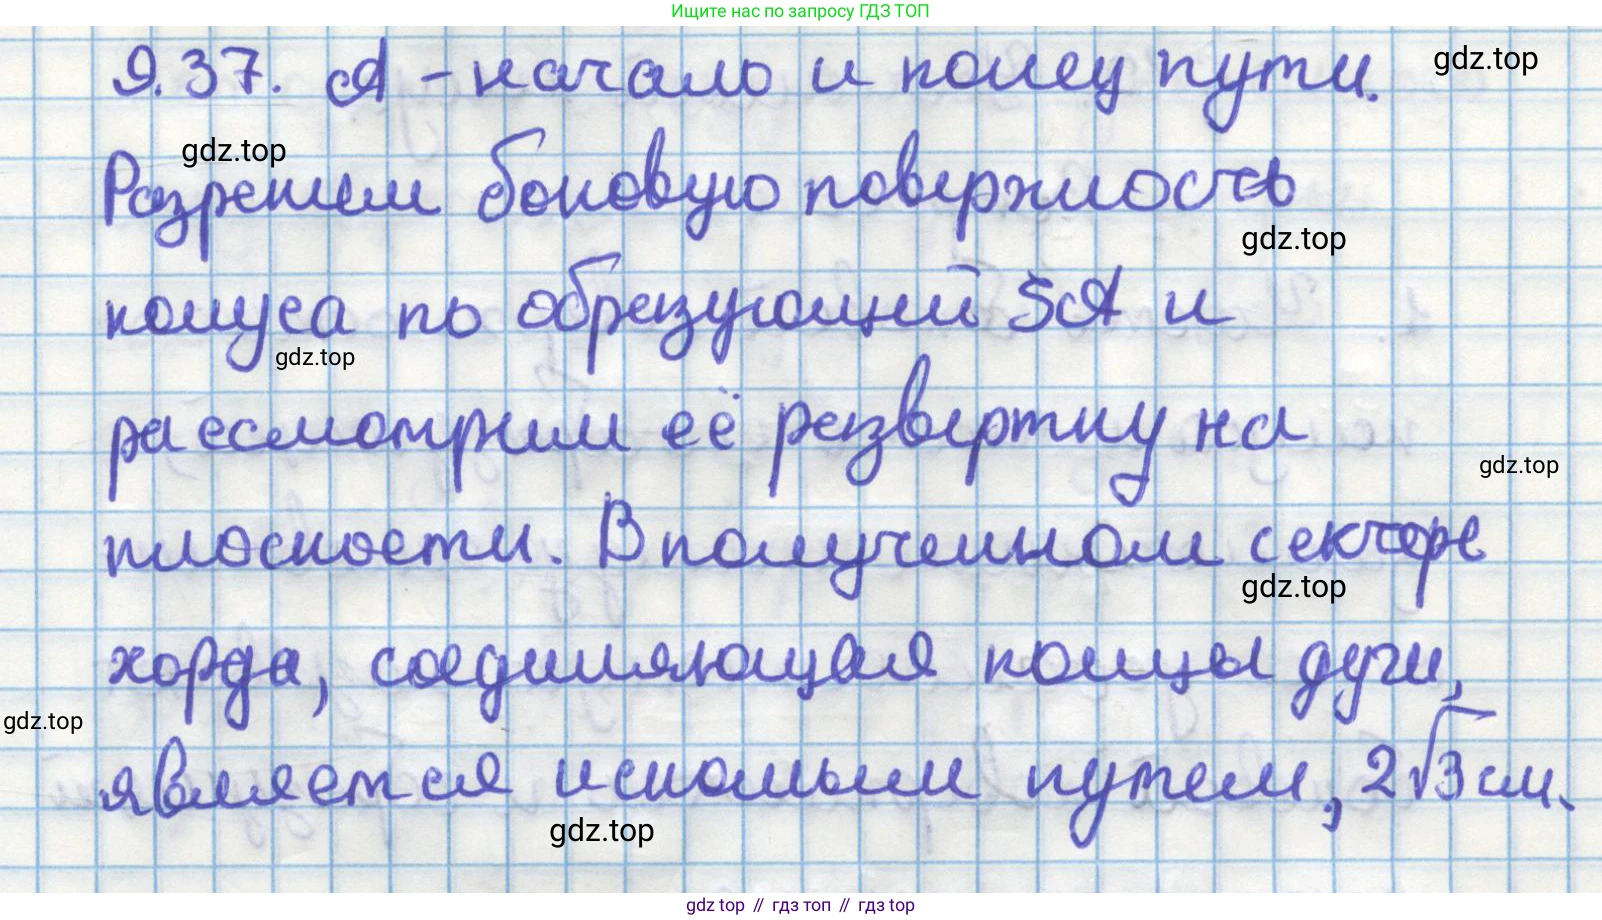 Ищите нас по запросу ГДЗ ТОП
9.37. А - начало и конец пути.
gdz.top
gdz.top
Разрежем боковую поверхность
gdz.top
конуса по образующий SA и
gdz.top
рассмотрим её развертку на
gdz.top
плоскости. В полученном секторе
gdz.top
хорда, соединяющая концы дуги,
gdz.top
является искомым путем, 2√3 см.
gdz.top
gdz top // гдз топ // гдз top